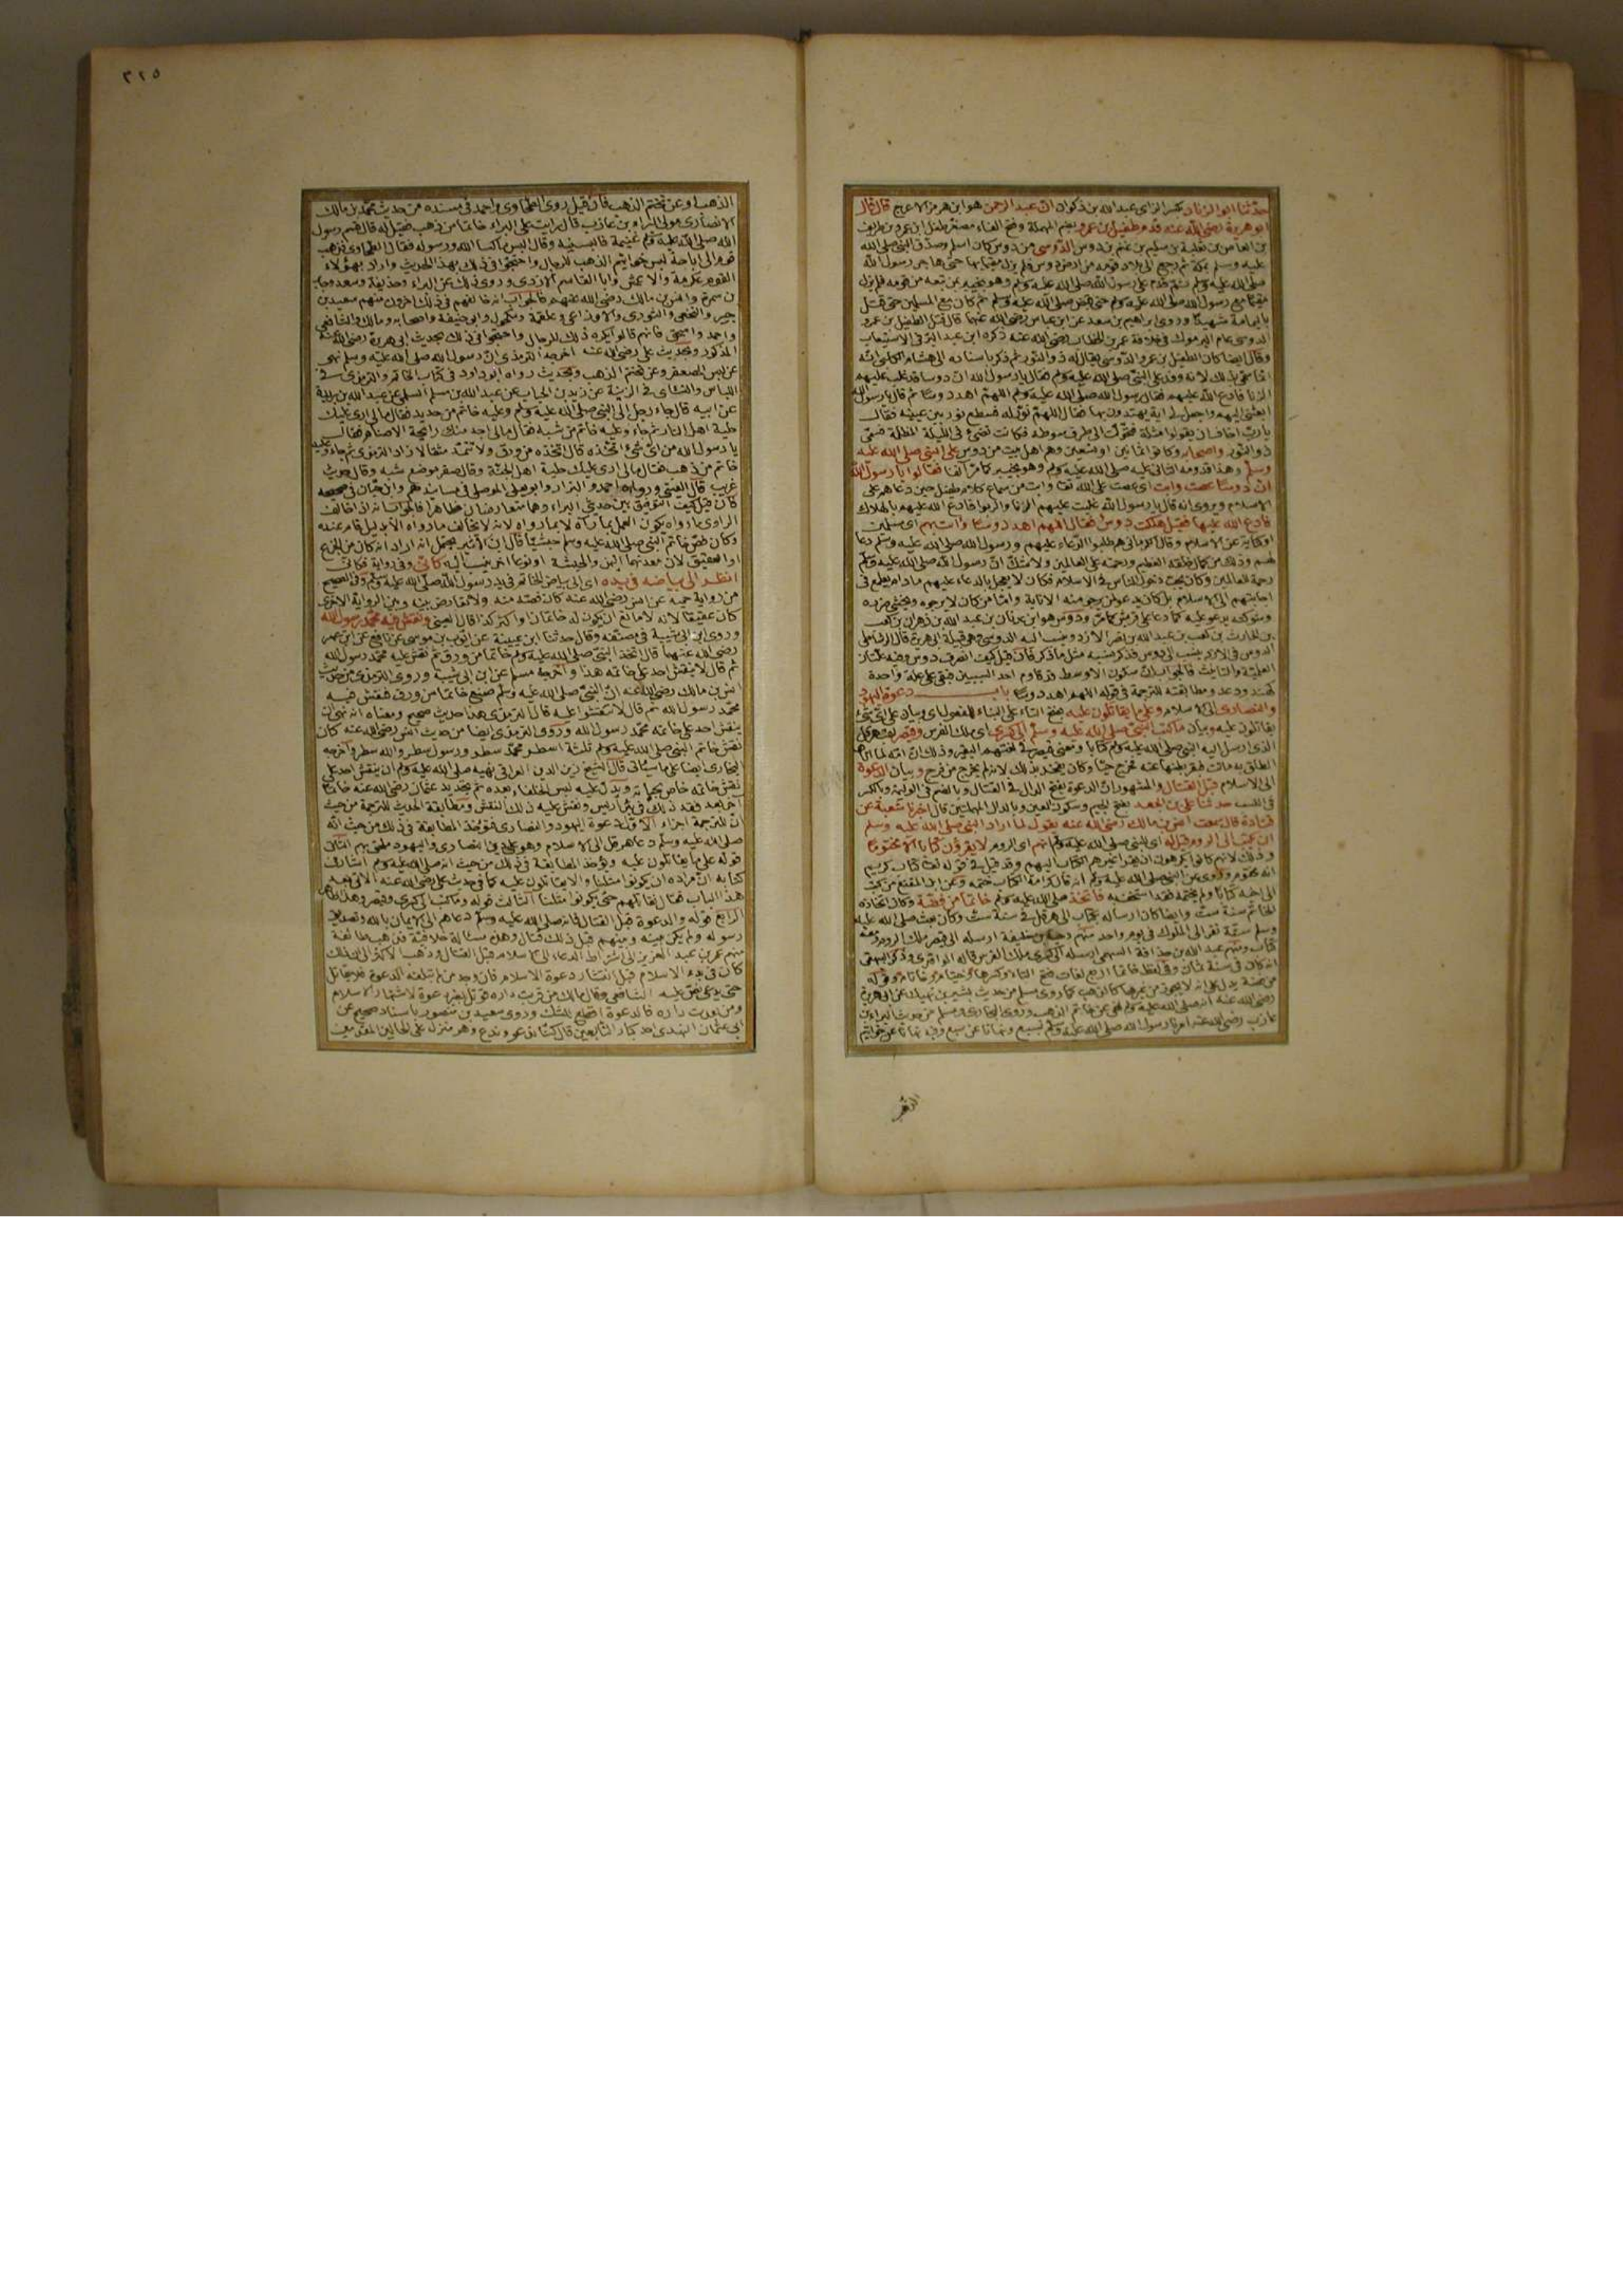 حدثنا ابو الزناد بكسر الزاى عبد الله بن ذكوان ان عبد الرحمن هو ابن هرمز الاعرج قال قال
ابو هريرة رضى الله عنه قدم طفيل بن عمرو بضم المهملة وفتح الفاء مصغر طفل ابن عمرو بن طريف
بن العاص بن ثعلبة بن سليم بن غنم بن دوس الدوسى من دوس كان اسلم وصدق النبى صلى الله
عليه وسلم بمكة ثم رجع الى بلاد قومه من ارض دوس فلم يزل مقيما بها حتى هاجر رسول الله
صلى الله عليه وسلم ثم قدم على رسول الله صلى الله عليه وسلم وهو بخيبر بمن تبعه من قومه فلم يزل
مقيما مع رسول الله صلى الله عليه وسلم حتى قبض صلى الله عليه وسلم ثم كان مع المسلمين حتى قتل
باليمامة شهيدا وروى ابراهيم بن سعد عن ابن عباس رضى الله عنهما قال قتل الطفيل بن عمرو
الدوسى عام اليرموك فى خلافة عمر بن الخطاب رضى الله عنه ذكره ابن عبد البر فى الاستيعاب
وقال ايضا كان الطفيل بن عمرو الدوسى يقال له ذو النور ثم ذكر باسناده الى هشام الكلبى انه
انما سمى بذلك لانه وفد على النبى صلى الله عليه وسلم فقال يا رسول الله ان دوسا قد غلب عليهم
الزنا فادع الله عليهم فقال رسول الله صلى الله عليه وسلم اللهم اهد دوسا ثم قال يا رسول الله
ابعثنى اليهم واجعل لى اية يهتدون بها فقال اللهم نور له فسطع نور بين عينيه فقال
يا رب اخاف ان يقولوا مثلة فتحولت الى طرف سوطه فكانت تضئ فى الليلة المظلمة فسمى
ذو النور واصحابه وكانوا ثمانين او تسعين وهم اهل بيت من دوس على النبى صلى الله عليه
وسلم وهذا قدومه الثانى عليه صلى الله عليه وسلم وهو بخيبر كما مر آنفا فقالوا يا رسول الله
ان دوسا عصت وابت اى عصت على الله تعالى وابت من سماع كلام طفيل حين دعاهم على
الاسلام ويروى انه قال يا رسول الله غلبت عليهم الزنا والربوا فادع الله عليهم بالهلاك
فادع الله عليها فقيل هلكت دوس فقال اللهم اهد دوسا وائت بهم اى مسلمين
او كناية عن الاسلام وقال الكرمانى هم طلبوا الدعاء عليهم ورسول الله صلى الله عليه وسلم دعا
لهم وذلك من كمال خلقه العظيم ورحمته على العالمين ولا شك ان رسول الله صلى الله عليه وسلم
رحمة للعالمين وكان يحب دخول الناس فى الاسلام فكان لا يعجل بالدعاء عليهم مادام يطمع فى
اجابتهم الى الاسلام بل كان يدعو لمن يرجى منه الانابة واما من كان لا يرجوه ويخشى ضره
وشوكته يدعو عليه كما دعا على قريش كما مر ودوس هو ابن عدثان بن عبد الله بن زهران بن كعب
بن الحارث بن كعب بن عبد الله بن نصر الازد ينسب اليه الدوسى
فالجواب ان سكون الاوسط قد كاوم احد السببين فبقى على علة واحدة
كهند ودعد ومطابقته للترجمة فى قوله اللهم اهد دوسا باب دعوة اليهود
والنصارى الى الاسلام وعلى ما يقاتلون عليه بفتح التاء على البناء للمفعول اى وبيان على اى شئ
يقاتلون عليه وبيان ما كتب النبى صلى الله عليه وسلم الى كسرى اى ملك الفرس وقيصر
الى الاسلام قبل القتال والمشهور ان الدعوة بفتح الدال فى القتال وبالضم فى الوليمة وبالكسر
فى النسب حدثنا على بن الجعد بفتح الجيم وسكون العين وبالدال المهملتين قال اخبرنا شعبة عن
قتادة قال سمعت انس بن مالك رضى الله عنه يقول لما اراد النبى صلى الله عليه وسلم
ان يكتب الى الروم قيل له اى للنبى صلى الله عليه وسلم انهم اى الروم لا يقرؤن كتابا الا مختوما
وذلك لانهم كانوا يكرهون ان يقرأ غيرهم الكتاب اليهم وقد قيل فى قوله تعالى كتاب كريم
انه مختوم وروى عن النبى صلى الله عليه وسلم انه قال كرامة الكتاب ختمه وعن ابن المقفع من كتب
الى اخيه كتابا ولم يختمه فقد استخف به فاتخذ صلى الله عليه وسلم خاتما من فضة وكان اتخاذه
الخاتم سنة ست وايضا كان ارساله بكتاب الى هرقل فى سنة ست وكان بعث صلى الله عليه
وسلم ستة نفر الى الملوك فى يوم واحد منهم دحية بن خليفة ارسله الى قيصر ملك الروم ومعه
كتاب ومنهم عبد الله بن حذافة السهمى ارسله الى كسرى ملك الفرس قاله الواقدى وذكر البيهقى
انه كان فى سنة ثمان وفى لفظ خاتما اربع لغات فتح التاء وكسرها
رضى الله عنه انه صلى الله عليه وسلم نهى عن خاتم الذهب وروى البخارى ومسلم من حديث البراء بن
عازب رضى الله عنه امرنا رسول الله صلى الله عليه وسلم بسبع ونهانا عن سبع وفيه نهانا عن خواتيم
الذهب
٣٢٥
الذهب او عن تختم الذهب فان قيل روى الطحاوى واحمد فى مسنده من حديث محمد بن مالك
الانصارى مولى البراء بن عازب قال رايت على البراء خاتما من ذهب فقيل له قال قسم رسول
الله صلى الله عليه وسلم غنيمة فالبسنيه وقال البس ما كساك الله ورسوله فقال الطحاوى فذهب
قوم الى اباحة لبس خواتيم الذهب للرجال واحتجوا فى ذلك بهذا الحديث واراد بهؤلاء
القوم عكرمة والاعمش وابا القاسم الازدى وروى ذلك عن البراء وحذيفة وسعد وجابر
بن سمرة وانس بن مالك رضى الله عنهم فالجواب انه خالفهم فى ذلك اخرون منهم سعيد بن
جبير والنخعى والثورى والاوزاعى وعلقمة ومكحول وابو حنيفة واصحابه ومالك والشافعى
واحمد واسحق فانهم قالوا يكره ذلك للرجال واحتجوا فى ذلك بحديث ابى هريرة رضى الله عنه
المذكور وبحديث على رضى الله عنه اخرجه الترمذى ان رسول الله صلى الله عليه وسلم نهى
عن لبس المعصفر وعن تختم الذهب وبحديث رواه ابو داود فى كتاب الخاتم والترمذى فى
اللباس والنسائى فى الزينة عن زيد بن الحباب عن عبد الله بن مسلم السلمى عن عبد الله بن بريدة
عن ابيه قال جاء رجل الى النبى صلى الله عليه وسلم وعليه خاتم من حديد فقال مالى ارى عليك
حلية اهل النار ثم جاء وعليه خاتم من شبه فقال مالى اجد منك رائحة الاصنام فقال
يا رسول الله من اى شئ اتخذه قال اتخذه من ورق ولا تتمه مثقالا زاد الترمذى ثم جاء وعليه
خاتم من ذهب فقال مالى ارى عليك حلية اهل الجنة وقال صفر موضع شبه وقال حديث
غريب قال العينى ورواه احمد والبزار وابو يعلى الموصلى فى مسانيدهم وابن حبان فى صحيحه
فان قيل كيف التوفيق بين حديثى البراء وهما متعارضان ظاهرا فالجواب انه اذا خالف
الراوى ما رواه يكون العمل بما رآه لا بما رواه لانه لا يخالف ما رواه الا بدليل قام عنده
وكان فص خاتم النبى صلى الله عليه وسلم حبشيا قال ابن الاثير يحتمل انه اراد انه كان من الجزع
او العقيق لان معدنهما اليمن والحبشة او نوعا اخر ينسب اليه كأنى وفى رواية فكأنى
انظر الى بياضه فى يده اى الى بياض الخاتم فى يد رسول الله صلى الله عليه وسلم وفى الصحيح
من رواية حميد عن انس رضى الله عنه كان فصه منه ولا تعارض بينه وبين الرواية الاخرى
كان عقيقا لانه لا مانع ان يكون له خاتمان او اكثر كذا قال العينى ونقش فيه محمد رسول الله
وروى ابن ابى شيبة فى مصنفه وقال حدثنا ابن عيينة عن ايوب بن موسى عن نافع عن ابن عمر
رضى الله عنهما قال اتخذ النبى صلى الله عليه وسلم خاتما من ورق ثم نقش عليه محمد رسول الله
ثم قال لا ينقش احد على خاتمى هذا واخرجه مسلم عن ابن ابى شيبة وروى الترمذى من حديث
انس بن مالك رضى الله عنه ان النبى صلى الله عليه وسلم صنع خاتما من ورق فنقش فيه
محمد رسول الله ثم قال لا تنقشوا عليه قال الترمذى هذا حديث صحيح ومعناه انه نهى ان
ينقش احد على خاتمه محمد رسول الله وروى الترمذى ايضا من حديث انس رضى الله عنه كان
نقش خاتم النبى صلى الله عليه وسلم ثلثة اسطر محمد سطر ورسول سطر والله سطر واخرجه
البخارى ايضا على ما سيأتى قال الشيخ زين الدين العراقى نهيه صلى الله عليه وسلم ان ينقش احد على
نقش خاتمه خاص بحياته ويدل عليه لبس الخلفاء بعده ثم تجديد عثمان رضى الله عنه خاتما
آخر بعد فقد ذلك فى بئر اريس ونقش عليه ذلك النقش ومطابقة الحديث للترجمة من حيث
ان للترجمة اجزاء الاول دعوة اليهود والنصارى فتؤخذ المطابقة فى ذلك من حيث انه
صلى الله عليه وسلم دعا هرقل الى الاسلام وهو على دين النصارى واليهود ملحق بهم الثانى
قوله على ما يقاتلون عليه وتؤخذ المطابقة فى ذلك من حيث انه صلى الله عليه وسلم اشار فى
كتابه ان مراده ان يكونوا مثلنا والا يقاتلون عليه كما فى حديث على رضى الله عنه الاتى بعد
هذا الباب فقال نقاتلهم حتى يكونوا مثلنا الثالث قوله وما كتب الى كسرى وقيصر وهذا ظاهر
الرابع قوله والدعوة قبل القتال فانه صلى الله عليه وسلم دعاهم الى الايمان بالله وتصديق
رسوله ولم يكن بينه وبينهم قبل ذلك قتال وهذه مسئالة خلافية فذهب طائفة
منهم عمر بن عبد العزيز الى اشتراط الدعاء الى الاسلام قبل القتال وذهب الاكثر الى ان ذلك
كان فى بدء الاسلام قبل انتشار دعوة الاسلام فان وجد من لم تبلغه الدعوة لم يقاتل
حتى يدعى نص عليه الشافعى وقال مالك من قربت داره قوتل بغير دعوة لاشتهار الاسلام
ومن بعدت داره فالدعوة اقطع للشك وروى سعيد بن منصور باسناد صحيح عن
ابى عثمان النهدى احد كبار التابعين قال كنا ندعو وندع وهو منزل على الحالين المتقدمين